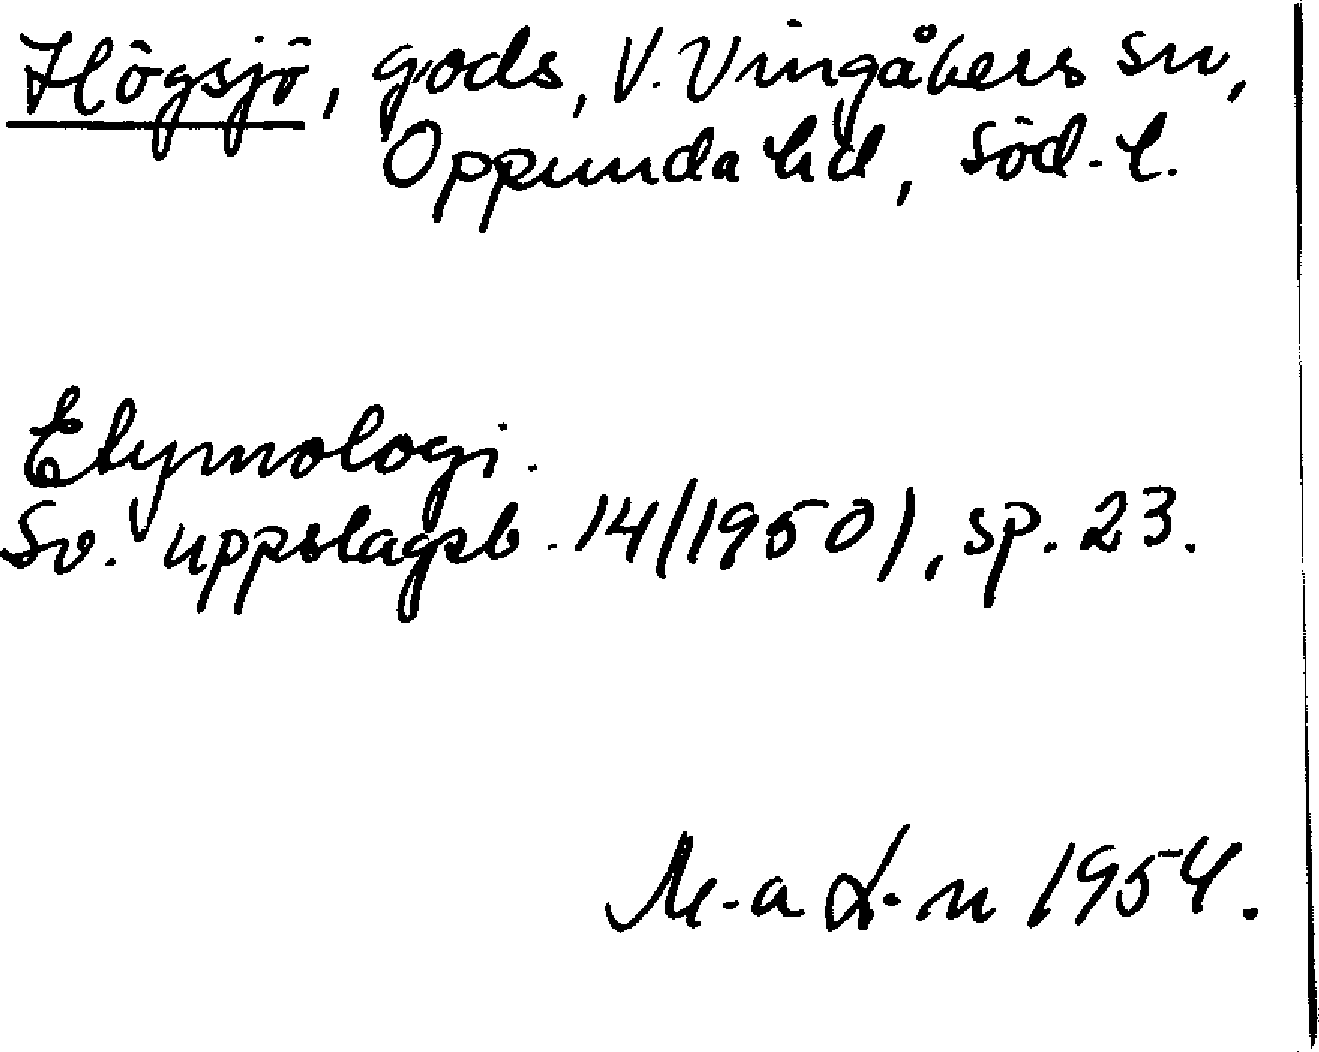 Högsjö, gods, V. Vingåkers sn,
Oppunda hd, Söd-l.
Etymologi.
Sv. uppslagsb. 14(1950), sp. 23.
M-a L-n 1954.